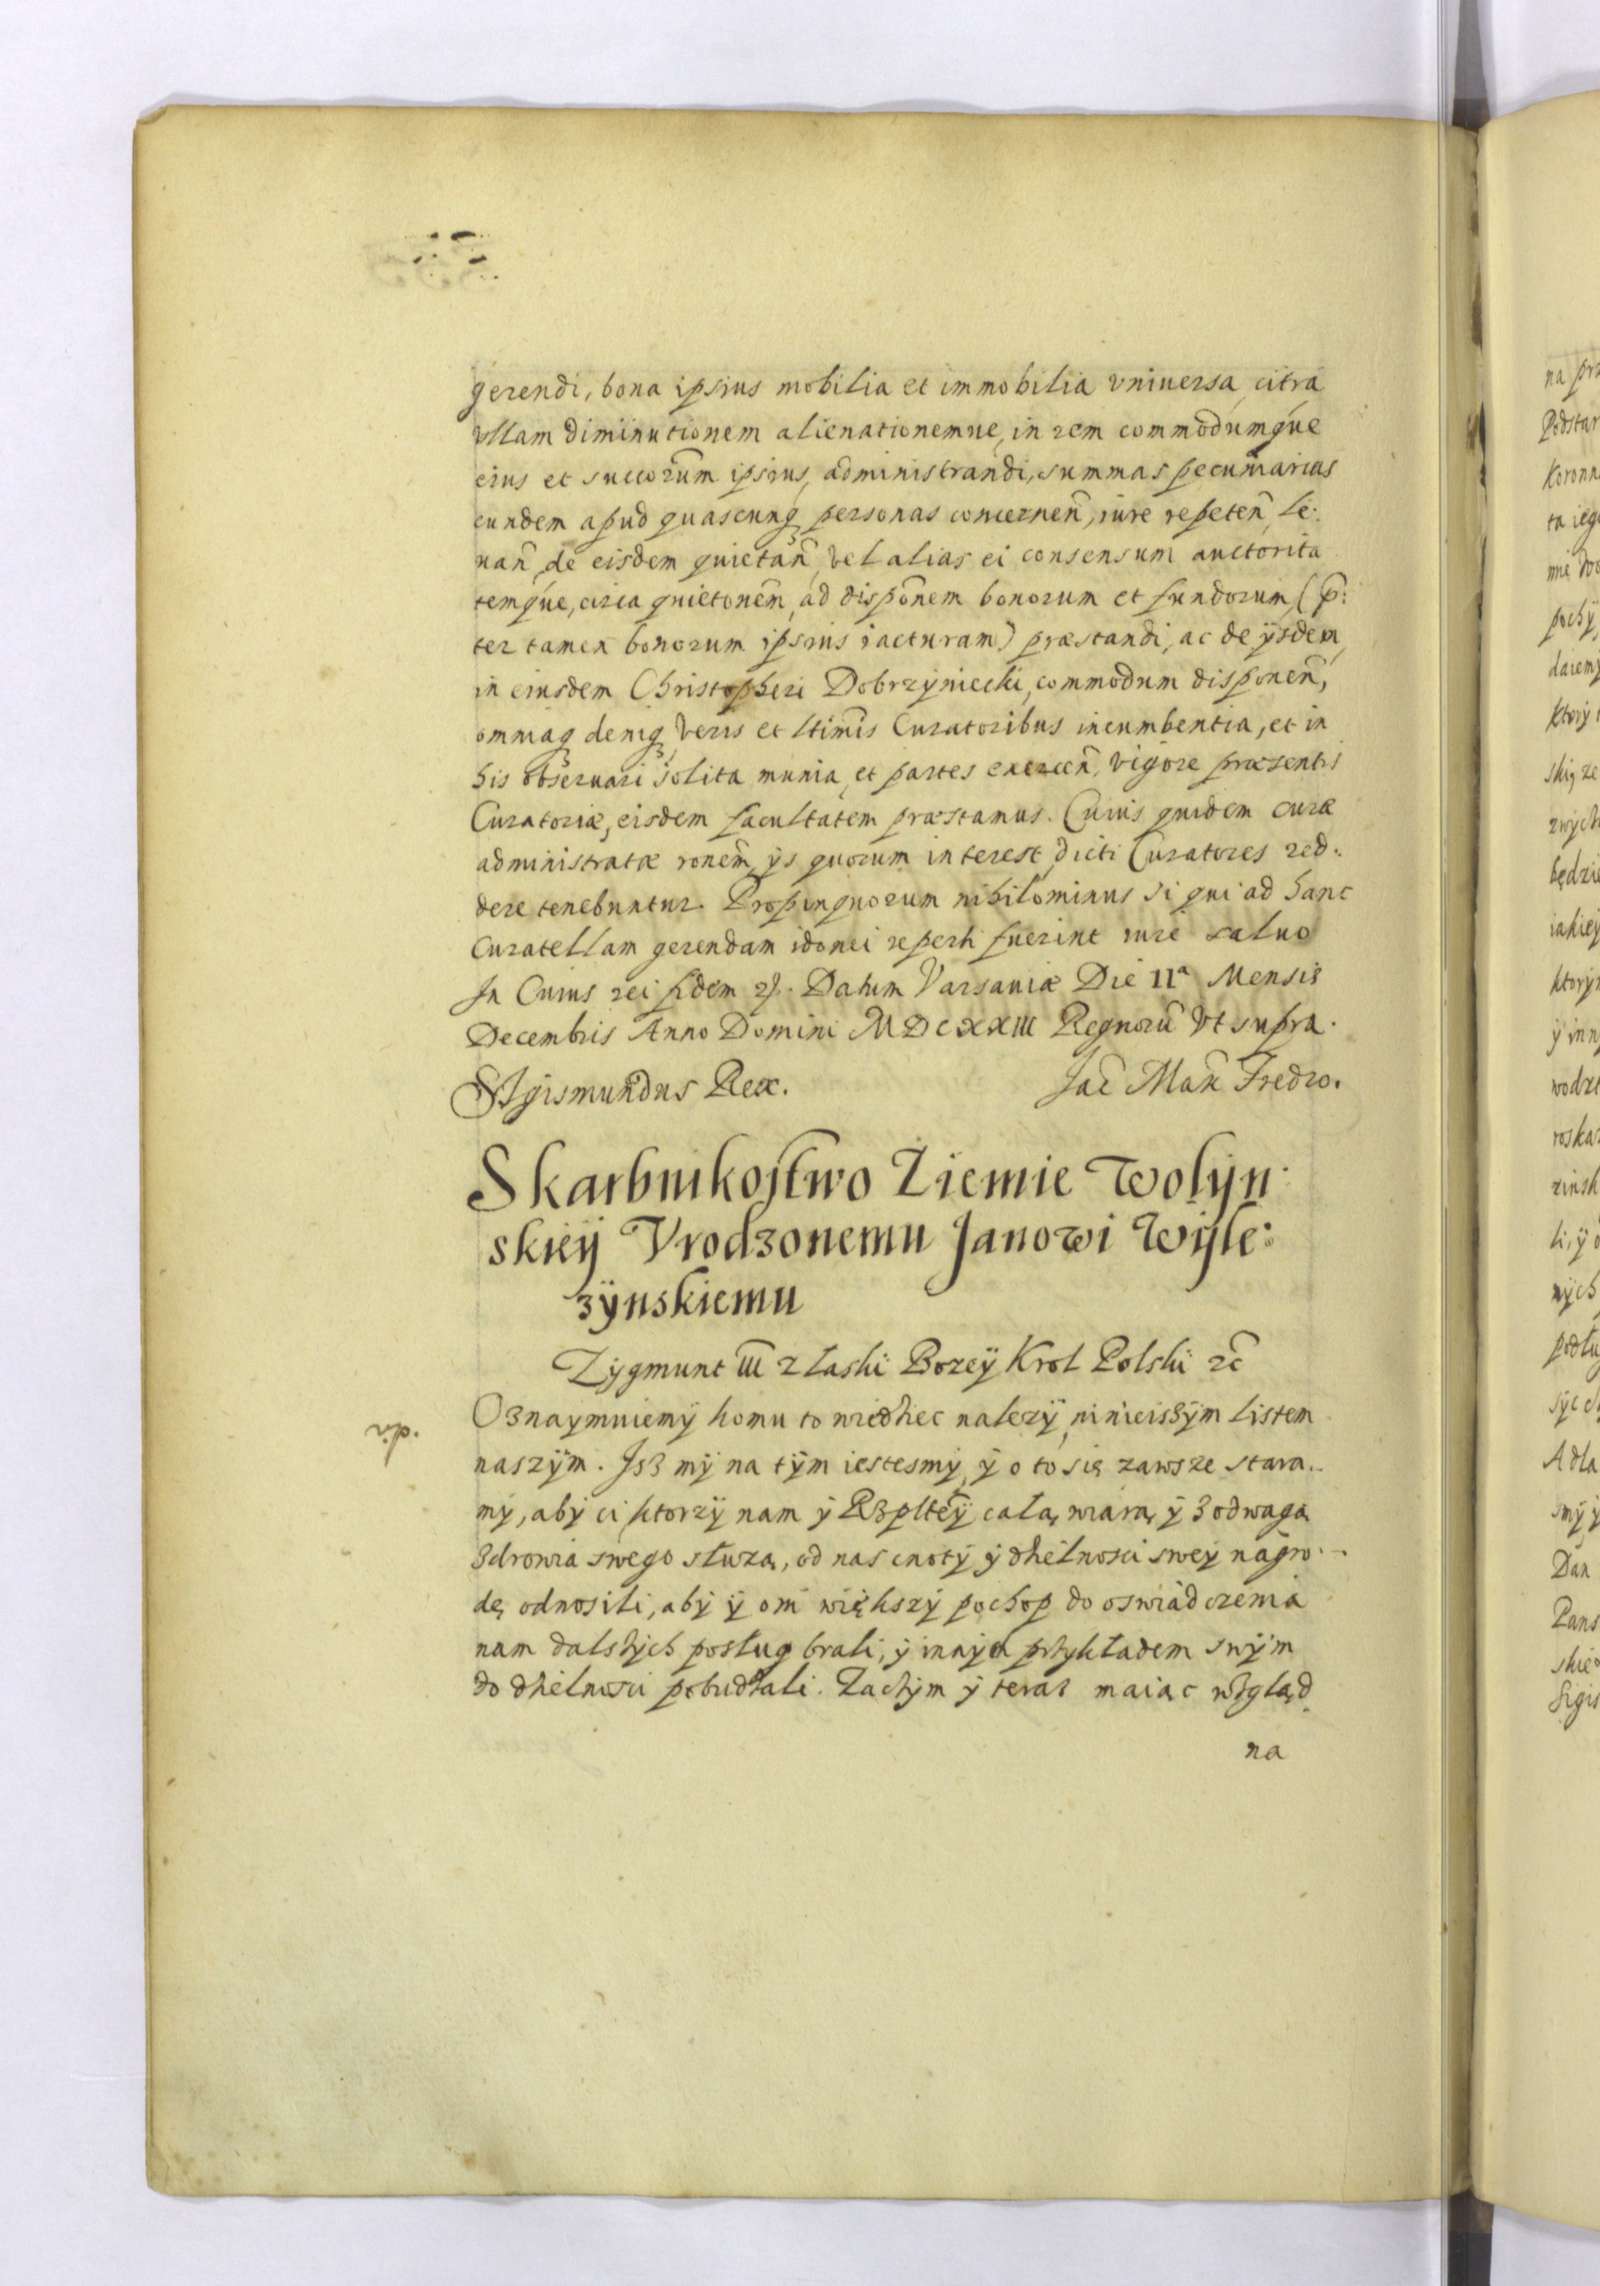 gerendi, bona ipsius mobilia et immobilia vniuersa, citra
vllam diminutionem alienationemue, in rem commodumque
eius et succorũm ipsius, administrandi, summas pecuniarias
eundem apud quascunq personas concerneñ, iure repeteñ, le:
uañ, de eisdem quietañ, vel alias ei consensum auctorita
temque, circa quietonẽm, ad dispõnem bonorum et fundorum (p̃:
ter tamen bonorum ipsius iacturam) præstandi, ac de ÿsdem
in eiusdem Christopheri Dobrzÿniecki, commodum disponeñ,
omniaq deniq veris et ltimĩs Curatoribus incumbentia, et in
his obseruari solita munia, et partes exerceñ, vigore præsentis
Curatoriæ, eisdem facultatem præstamus. Cuius quidem curæ
administratæ ronẽm, ÿs quorum interest, dicti Curatores red:
dere tenebuntur. Propinquorum nihilominus si qui ad hanc
Curatellam gerendam idonei reperti fuerint iure saluo
In Cuius rei fidem Datum Varsauiæ Die 11ª Mensis
Decembris Anno Domini MDCXXIII Regnorũ Vt supra.
SIgismundus Rex. Jac̃ Max̃ Fredro.
Skarbnikostwo Ziemie Wolÿn
skieÿ Vrodzonemu Janowi Wÿle:
zÿnskiemu
Zÿgmunt III z łaski Bozeÿ Krol Polski
Oznaymuiemÿ komu to wiedziec nalezÿ, ninieiszÿm listem
naszÿm. Jsz mÿ na tÿm iestesmÿ, ÿ o to się zawsze stara..
mÿ, abÿ ci ktorzÿ nam ÿ Rzpltẽÿ całą wiarą ÿ z odwagą
zdrowia swego słuzą, od nas cnotÿ ÿ dzielnosci sweÿ nagro
dę odnosili, abÿ ÿ oni większÿ pochop do oswiadczenia
nam dalszÿch posług brali, ÿ innÿch przÿkładem swÿm
do dzielnosci pobudzali. Zaczÿm ÿ teraz maiąc wzgląd
na